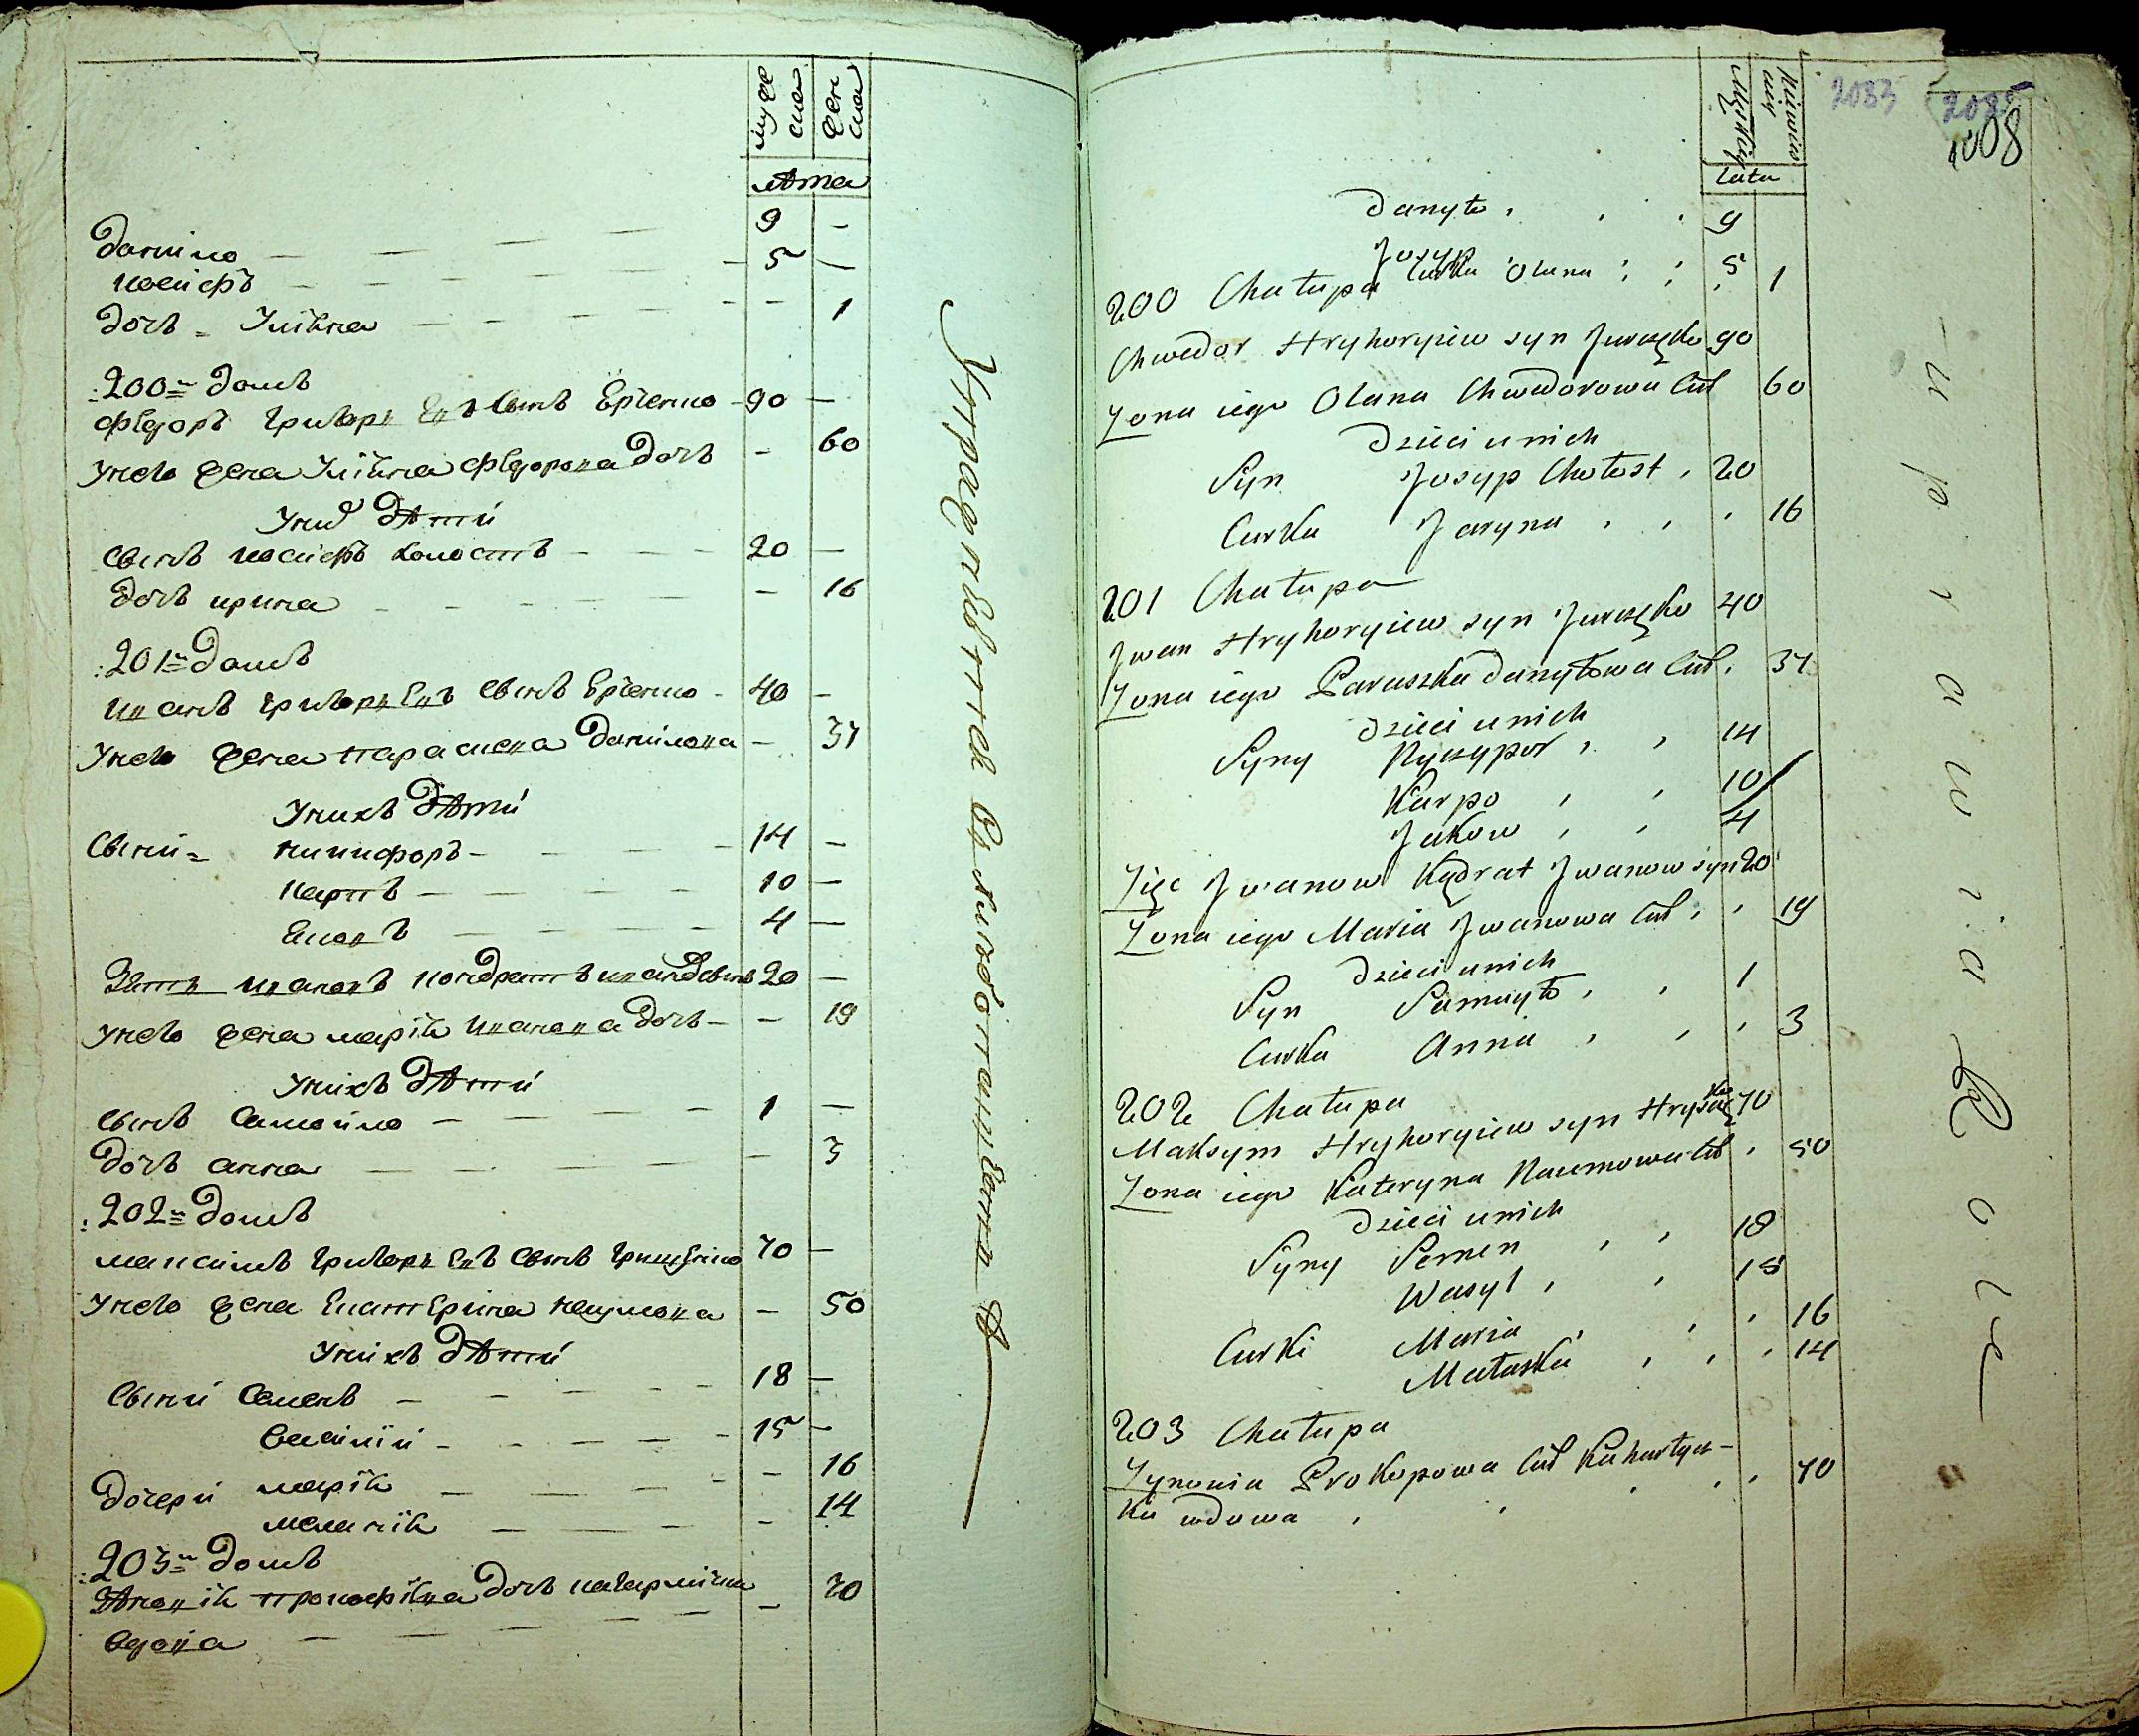 муж
ска
жен
ска
лѣта
Данило — — — 9 —
иосифъ — — — 5 —
дочъ = Улiяна — — — — 1
200й домъ
Федоръ григорьевъ сынъ Ерченко — 90 —
у него жена Улiяна Федорова дочъ — 60
у них дѣти
сынъ иосифъ холостъ — — — 20 —
дочъ ирина — — — — 16
201й домъ
иванъ григорьевъ сынъ Ерченко — 40 —
у него жена параскева данилова — 37
у нихъ дѣти
сыни = никифоръ — — — 14 —
карпъ — — — 10 —
яковъ — — — 4 —
зять ивановъ кондратъ ивановъ сынъ 20 —
у него жена марiя иванова дочъ — — 19
у нихъ дѣти
сынъ самойло — — — 1 —
дочъ анна — — — — 3
202й домъ
максимъ григорьевъ сынъ грищенко 70 —
у него жена екатерина наумова — 50
у нихъ дѣти
сыни семенъ — — — 18 —
василiй — — — 15 —
дочери марiя — — — — 16
меланiя — — — — 14
203й домъ
зѣновiя прокофiева дочъ кагарлička — 70
вдова — — — — —
Męzkiey
Niewie
sciey
lata
2033
2085
1008
Danyło , , , 9
Josyp , , 5
200 Chałupa Curka Olana , , , 1
Chwedor Hryhoryiew syn Jurczęko 90
Żona iego Olana Chwedorowa Cur 60
Dzieci u nich
Syn Josyp Chołost , 20
Curka Jaryna , , , 16
201 Chałupa
Jwan Hryhoryiew syn Jurczęko 40
Żona iego Paraszka Danyłowa Cur , 37
Dzieci u nich
Syny Nyczypor , , 14
Karpo , , 10
Jakow , , 4
Zięc Jwanow Kędrat Jwanow syn 20
Żona iego Maria Jwanowa Cur , , 19
Dzieci u nich
Syn Samuyło , , 1
Curka Anna , , , 3
202 Chałupa
Maksym Hryhoryiew syn Hryszczęko 70
Żona iego Kateryna Naumowa Cur , 50
Dzieci u nich
Syny Semen , , 18
Wasyl , , 15
Curki Maria , , , 16
Małaszka , , , 14
203 Chałupa
Zynowia Prokopowa Cur Kaharłyc-
ka wdowa , , , , , 70